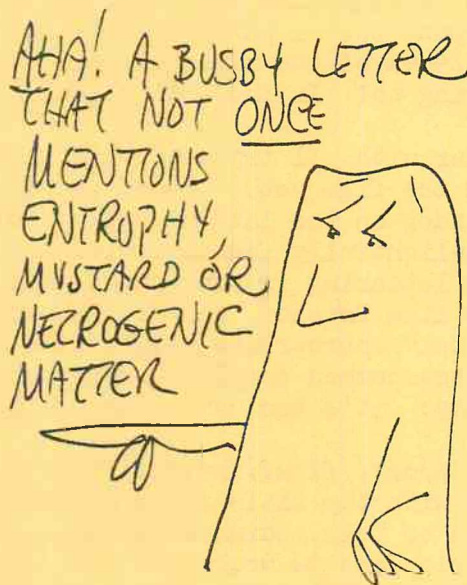 AHA! A BUSBY LETTER
THAT NOT ONCE
MENTIONS
ENTROPHY,
MUSTARD OR
NECROGENIC
MATTER